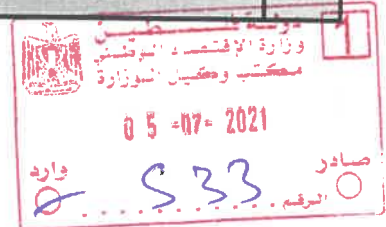 دولة فلسطين
وزارة الإقتصاد الوطني
مكتب وكيل الوزارة
1
05 -07- 2021
صادر
وارد
الرقم 533